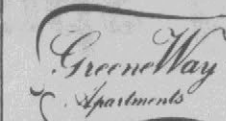 GreeneWay
Apartments